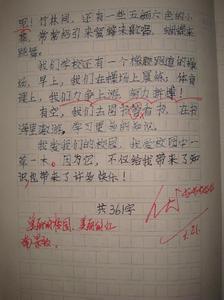 吧！竹林间，还有一些五颜六色的小
花，常常吸引来蜜蜂来歌唱，蝴蝶来
跳舞。
我们学校还有一个橡胶跑道的操
场，早上，我们在操场上晨练，体育
课上，我们力争上游，努力拼搏！
有空，我们去图书馆看书，在书
海里遨游，学习更多的知识。
我爱我们的校园，我爱校园中一
草一木，因为它，不仅给我带来了知
识也带来了许多快乐！
共361字
美丽的校园，美丽的
1.21.